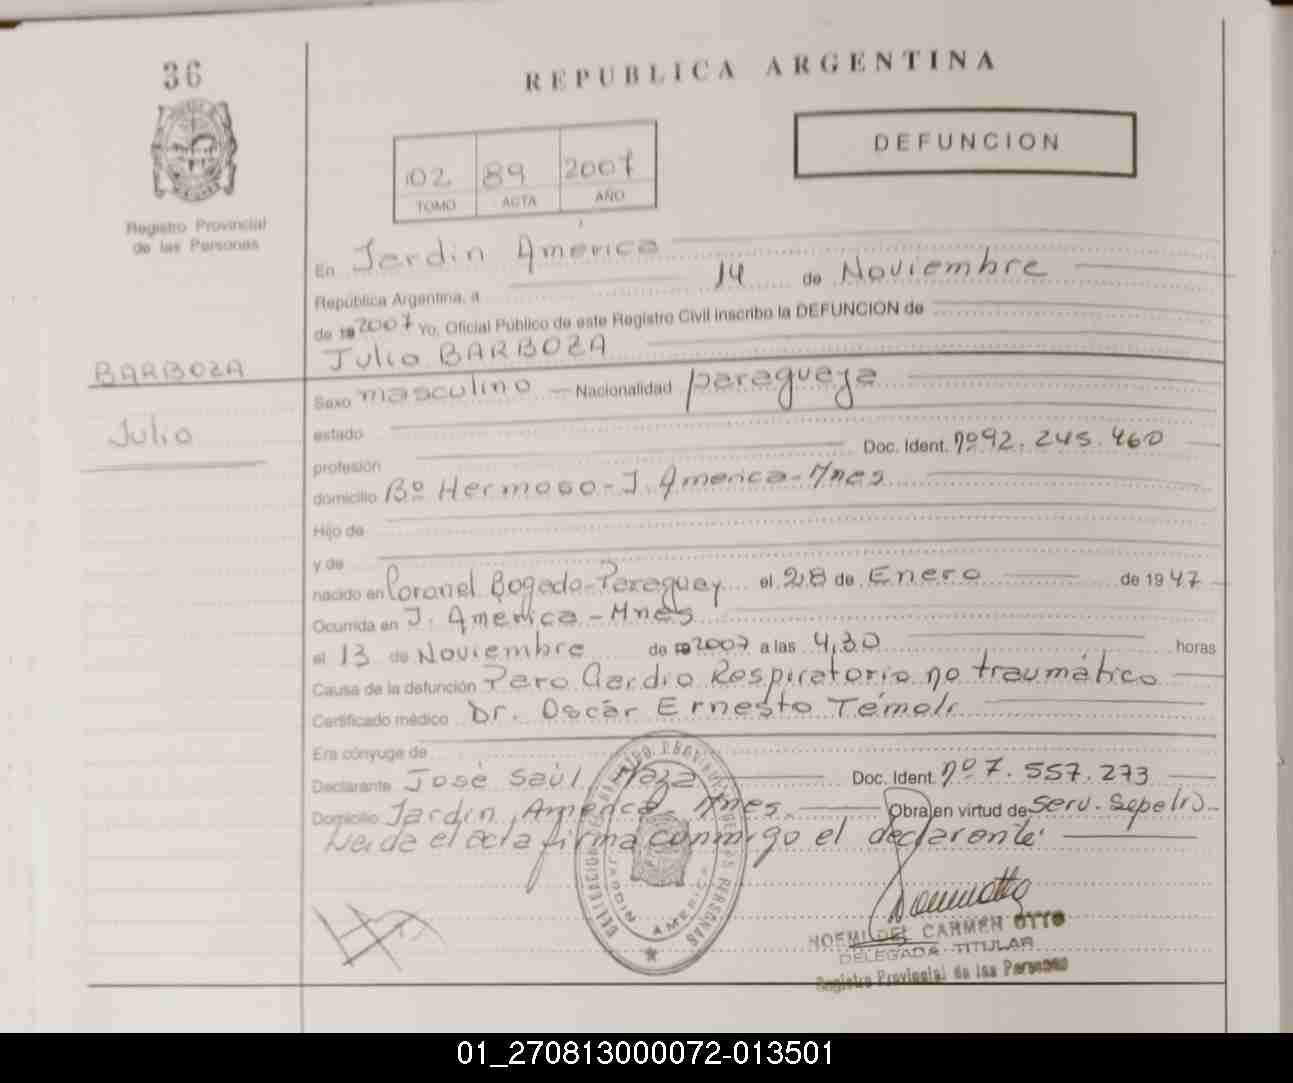 36
REPUBLICA ARGENTINA
DEFUNCION
02 89 2007
TOMO ACTA AÑO
Registro Provincial
de las Personas
En Jardin America
República Argentina, a 14 de Noviembre
de 19 2007 Yo, Oficial Público de este Registro Civil inscribo la DEFUNCION de
BARBOZA
Julio BARBOZA
Sexo masculino Nacionalidad paraguaya
Julio
estado
profesión Doc. Ident. nº 92.245.460
domicilio Bº Hermoso - J. America - Mnes
Hijo de
y de
nacido en Coronel Bogado - Paraguay el 28 de Enero de 1947
Ocurrida en J. América - Mnes
el 13 de Noviembre de 19 2007 a las 4,30 horas
Causa de la defunción Paro Cardio Respiratorio no traumático
Certificado médico Dr. Oscar Ernesto
Era cónyuge de
Declarante José Saúl Doc. Ident. nº 7.557.273
Domicilio Jardin América - Mnes. Obra en virtud de Serv. Sepelio
Leida el acta firma conmigo el declarante
DELEGACION REGISTRO PROVINCIAL DE LAS PERSONAS
JARDIN AMERICA
NOEMI DEL CARMEN OTTO
DELEGADA TITULAR
Registro Provincial de las Personas
01_270813000072-013501